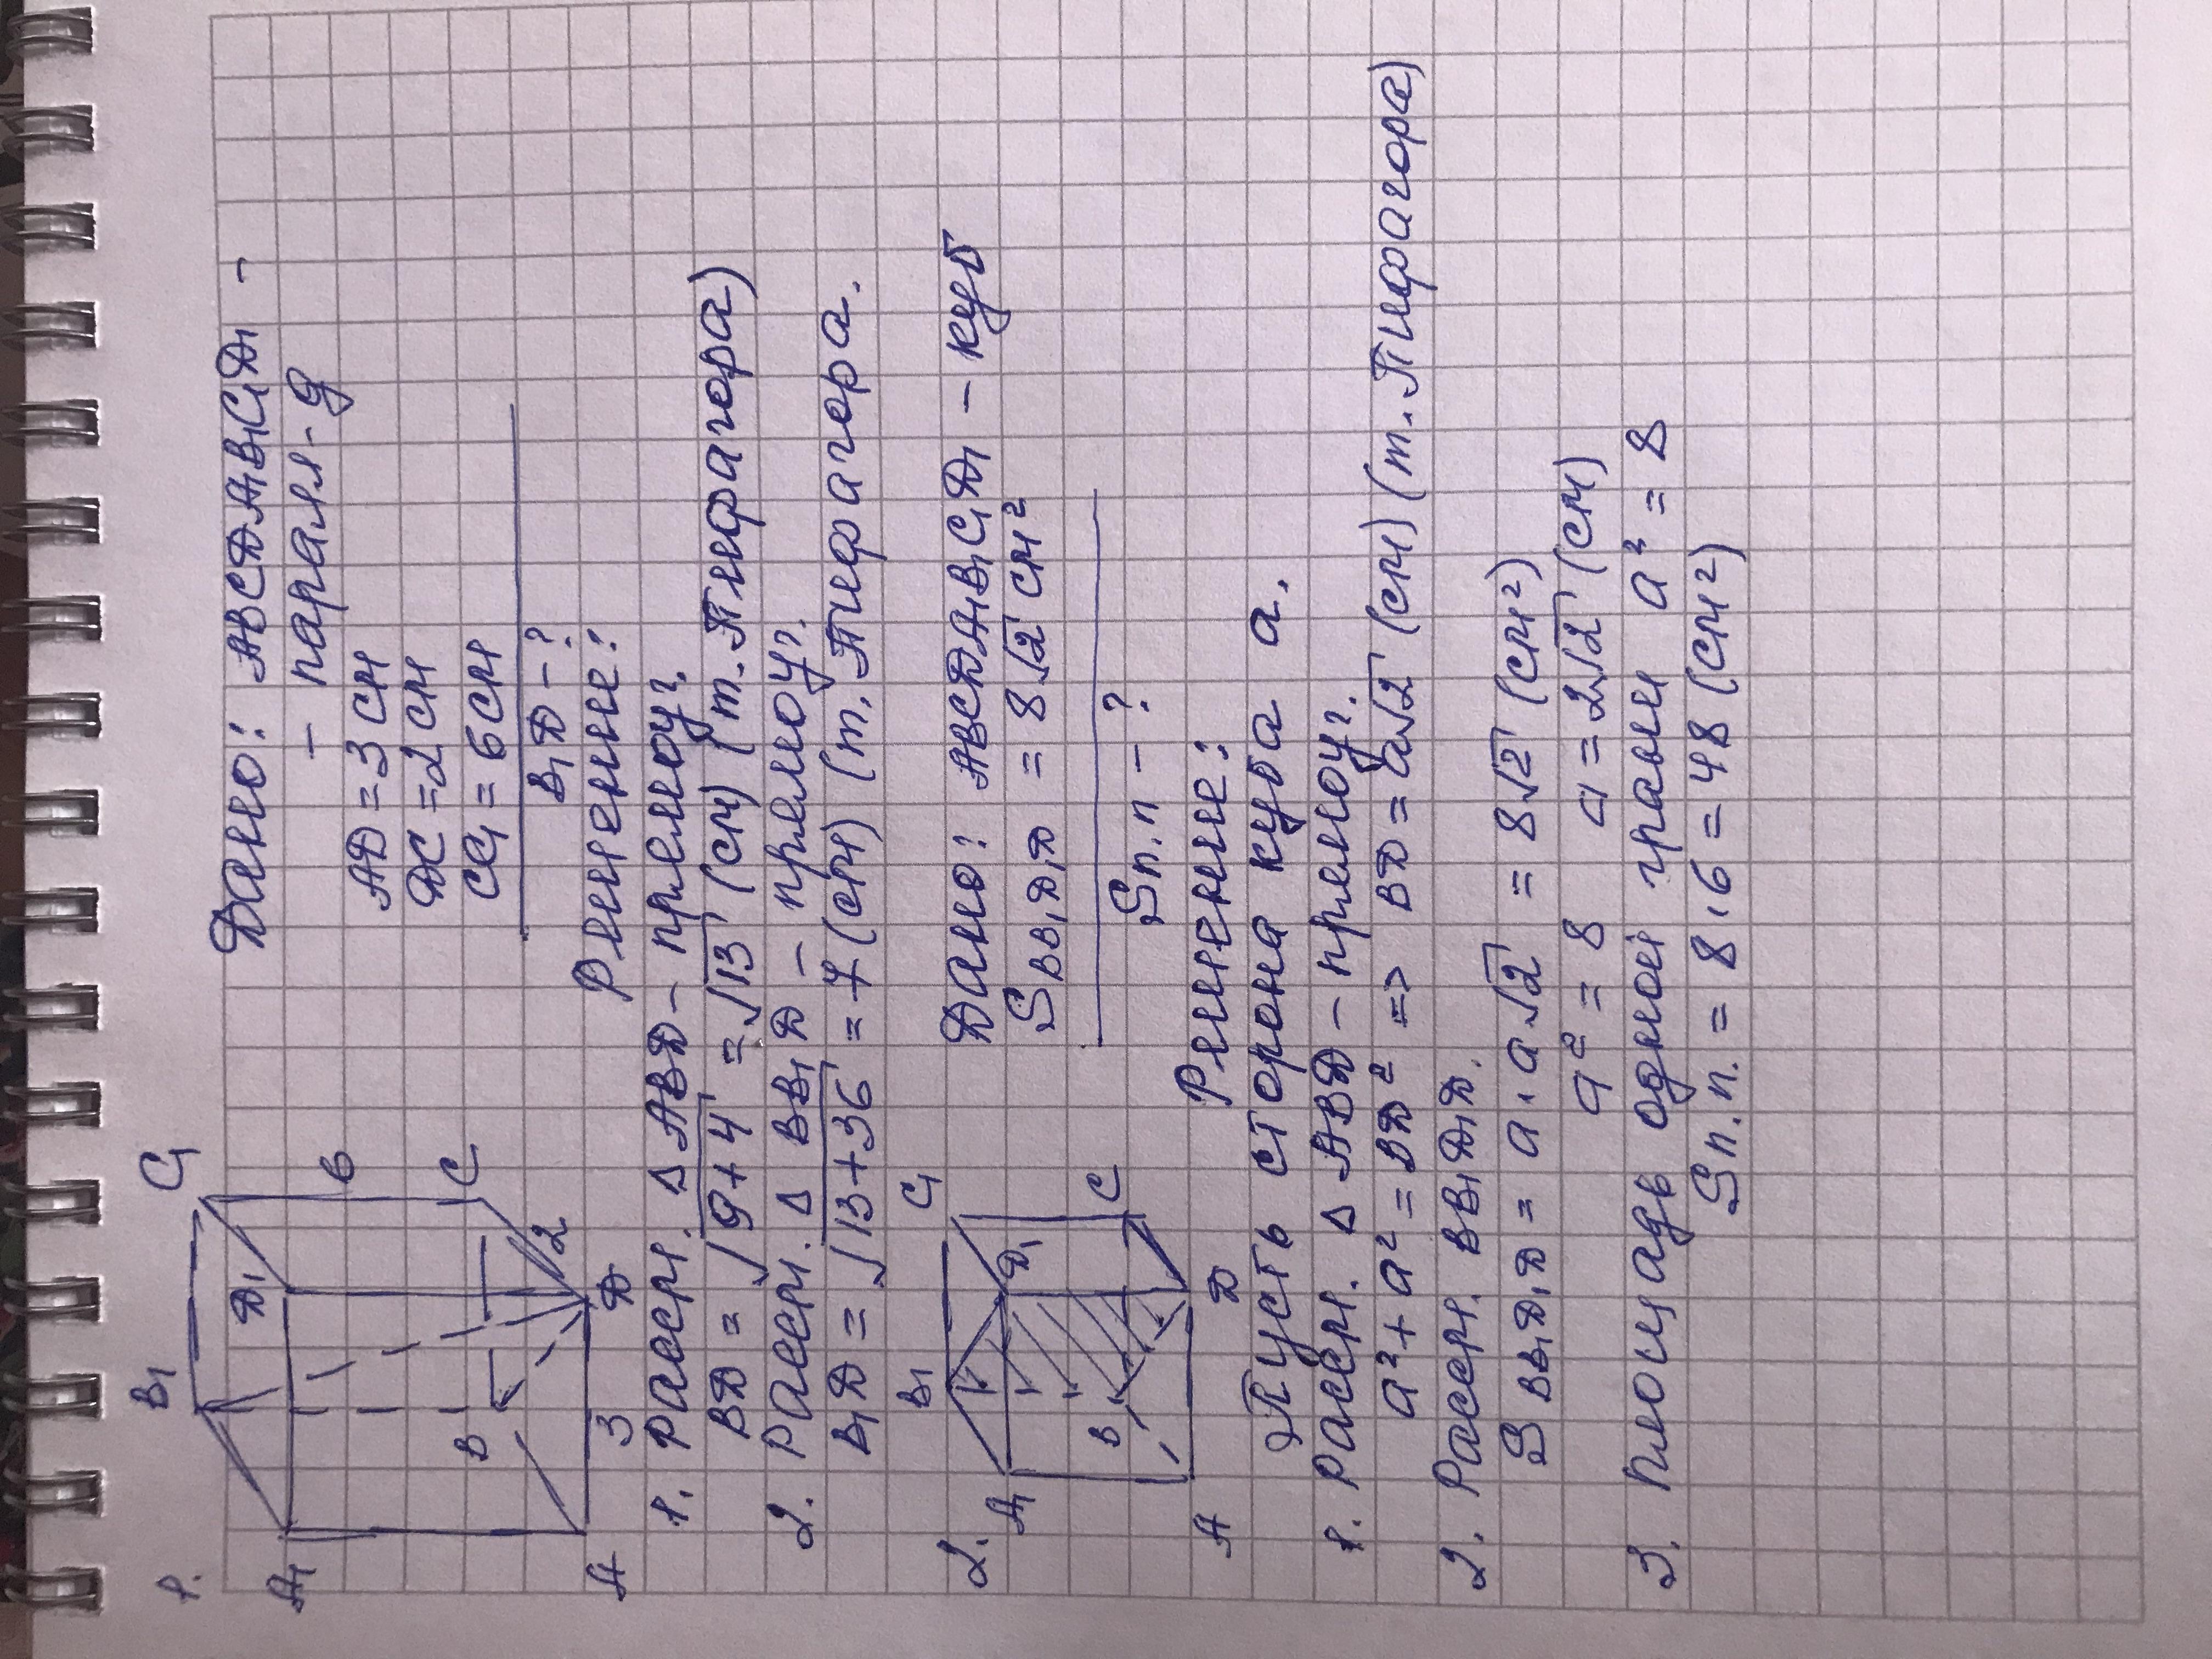 1.
B₁ C₁
A₁ D₁
6
B C
2
A 3 D
Дано: ABCDA₁B₁C₁D₁ –
– парал-д
AD = 3 см
DC = 2 см
CC₁ = 6 см
B₁D – ?
Решение:
1. Рассм. Δ ABD – прямоуг.
BD = √9+4 = √13 (см) (т. Пифагора)
2. Рассм. Δ BB₁D – прямоуг.
B₁D = √13+36 = 7 (см) (т. Пифагора.
2.
B₁ C₁
A₁ D₁
B C
A D
Дано: ABCDA₁B₁C₁D₁ – куб
S BB₁D₁D = 8√2 см²
Sп.п – ?
Решение:
Пусть сторона куба a.
1. Рассм. Δ ABD – прямоуг.
a² + a² = BD² => BD = a√2 (см) (т. Пифагора)
2. Рассм. BB₁D₁D.
S BB₁D₁D = a · a√2 = 8√2 (см²)
a² = 8 a = 2√2 (см)
3. Площадь одной грани a² = 8
Sп.п. = 8 · 6 = 48 (см²)